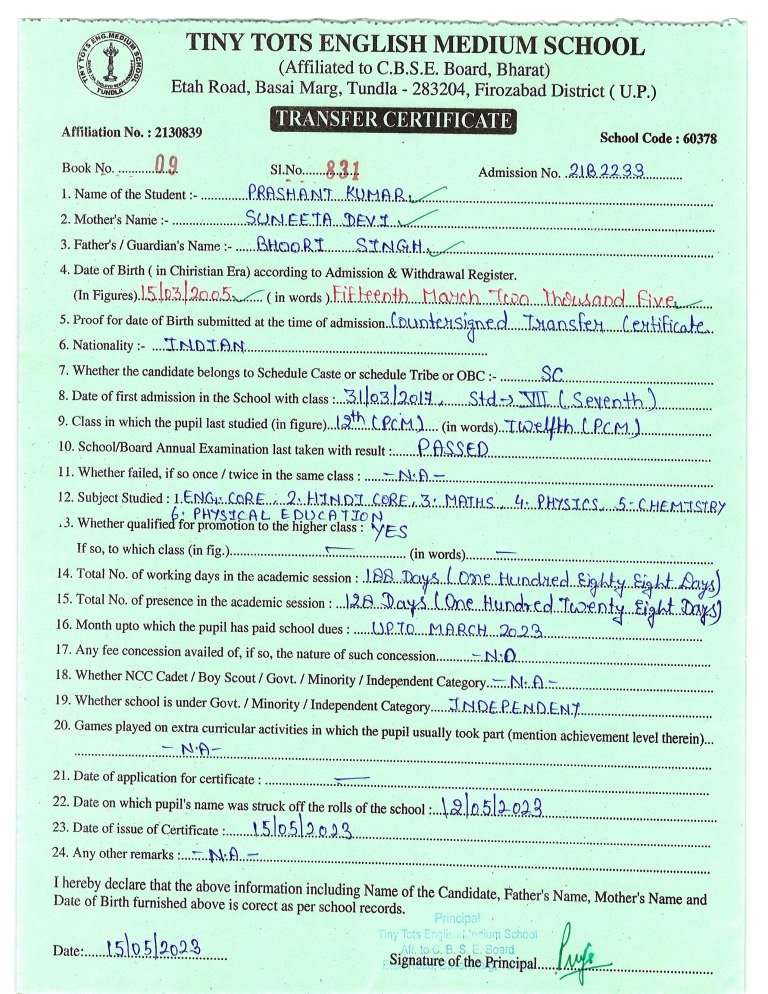 TINY TOTS ENG. MEDIUM SCHOOL
TUNDLA
TINY TOTS ENGLISH MEDIUM SCHOOL
(Affiliated to C.B.S.E. Board, Bharat)
Etah Road, Basai Marg, Tundla - 283204, Firozabad District ( U.P.)
TRANSFER CERTIFICATE
Affiliation No. : 2130839
School Code : 60378
Book No. ...........09 Sl.No.......831 Admission No. .21B2233..........
1. Name of the Student :- ...........PRASHANT KUMAR
2. Mother's Name :- ..................SUNEETA DEVI
3. Father's / Guardian's Name :- .....BHOORI SINGH
4. Date of Birth ( in Chiristian Era) according to Admission & Withdrawal Register.
(In Figures).15/03/2005...... ( in words ).Fifteenth March Two Thousand Five
5. Proof for date of Birth submitted at the time of admission..Countersigned Transfer Certificate
6. Nationality :- ...INDIAN
7. Whether the candidate belongs to Schedule Caste or schedule Tribe or OBC :- .......... SC
8. Date of first admission in the School with class :..31/03/2017, Std → VII (Seventh)
9. Class in which the pupil last studied (in figure)..12th (PCM).... (in words)..Twelfth (PCM)
10. School/Board Annual Examination last taken with result :.......PASSED
11. Whether failed, if so once / twice in the same class : .....- N.A -
12. Subject Studied : 1. ENG. CORE, 2. HINDI CORE, 3. MATHS, 4. PHYSICS, 5. CHEMISTRY
6. PHYSICAL EDUCATION
.3. Whether qualified for promotion to the higher class : YES
If so, to which class (in fig.)........................ — ................. (in words)....... —
14. Total No. of working days in the academic session : .188 Days (One Hundred Eighty Eight Days)
15. Total No. of presence in the academic session : ...128 Days (One Hundred Twenty Eight Days)
16. Month upto which the pupil has paid school dues : .....UPTO MARCH 2023
17. Any fee concession availed of, if so, the nature of such concession.........- N.O
18. Whether NCC Cadet / Boy Scout / Govt. / Minority / Independent Category....- N.A -
19. Whether school is under Govt. / Minority / Independent Category.....INDEPENDENT
20. Games played on extra curricular activities in which the pupil usually took part (mention achievement level therein)...
- N.A -
21. Date of application for certificate : .................. —
22. Date on which pupil's name was struck off the rolls of the school :..12/05/2023
23. Date of issue of Certificate :.......15/05/2023
24. Any other remarks :...- N.A -
I hereby declare that the above information including Name of the Candidate, Father's Name, Mother's Name and
Date of Birth furnished above is corect as per school records.
Principal
Tiny Tots English Medium School
Aff. to C. B. S. E. Board
Date:......15/05/2023 Signature of the Principal....